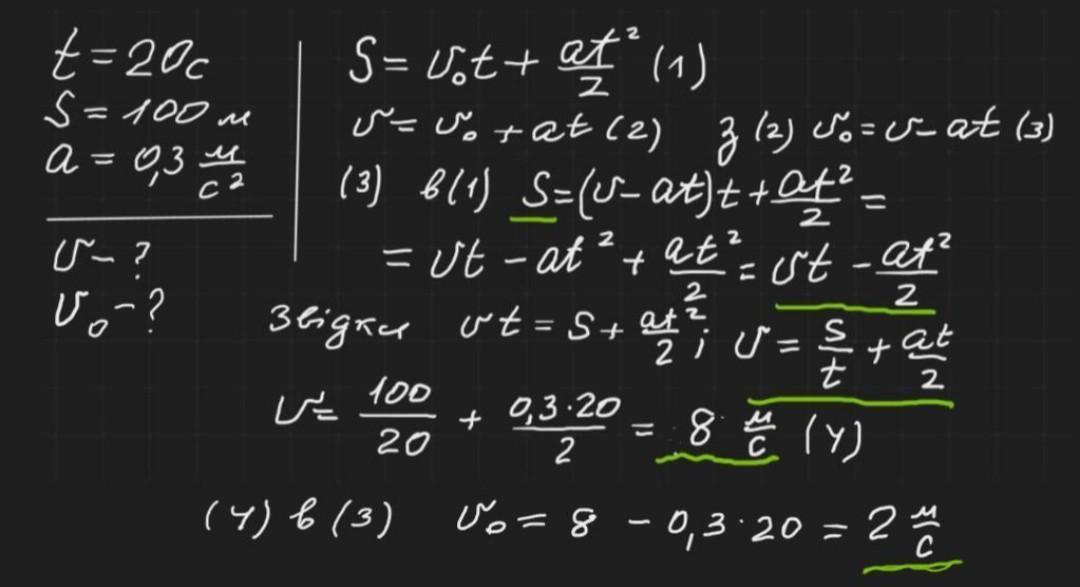 t = 20с
S = 100 м
a = 0,3 м/с²
υ - ?
υ₀ - ?
S = υ₀t + at²/2 (1)
υ = υ₀ + at (2) з (2) υ₀ = υ - at (3)
(3) в (1) S = (υ - at)t + at²/2 =
= υt - at² + at²/2 = υt - at²/2
звідки υt = S + at²/2; υ = S/t + at/2
υ = 100/20 + 0,3·20/2 = 8 м/с (4)
(4) в (3) υ₀ = 8 - 0,3·20 = 2 м/с